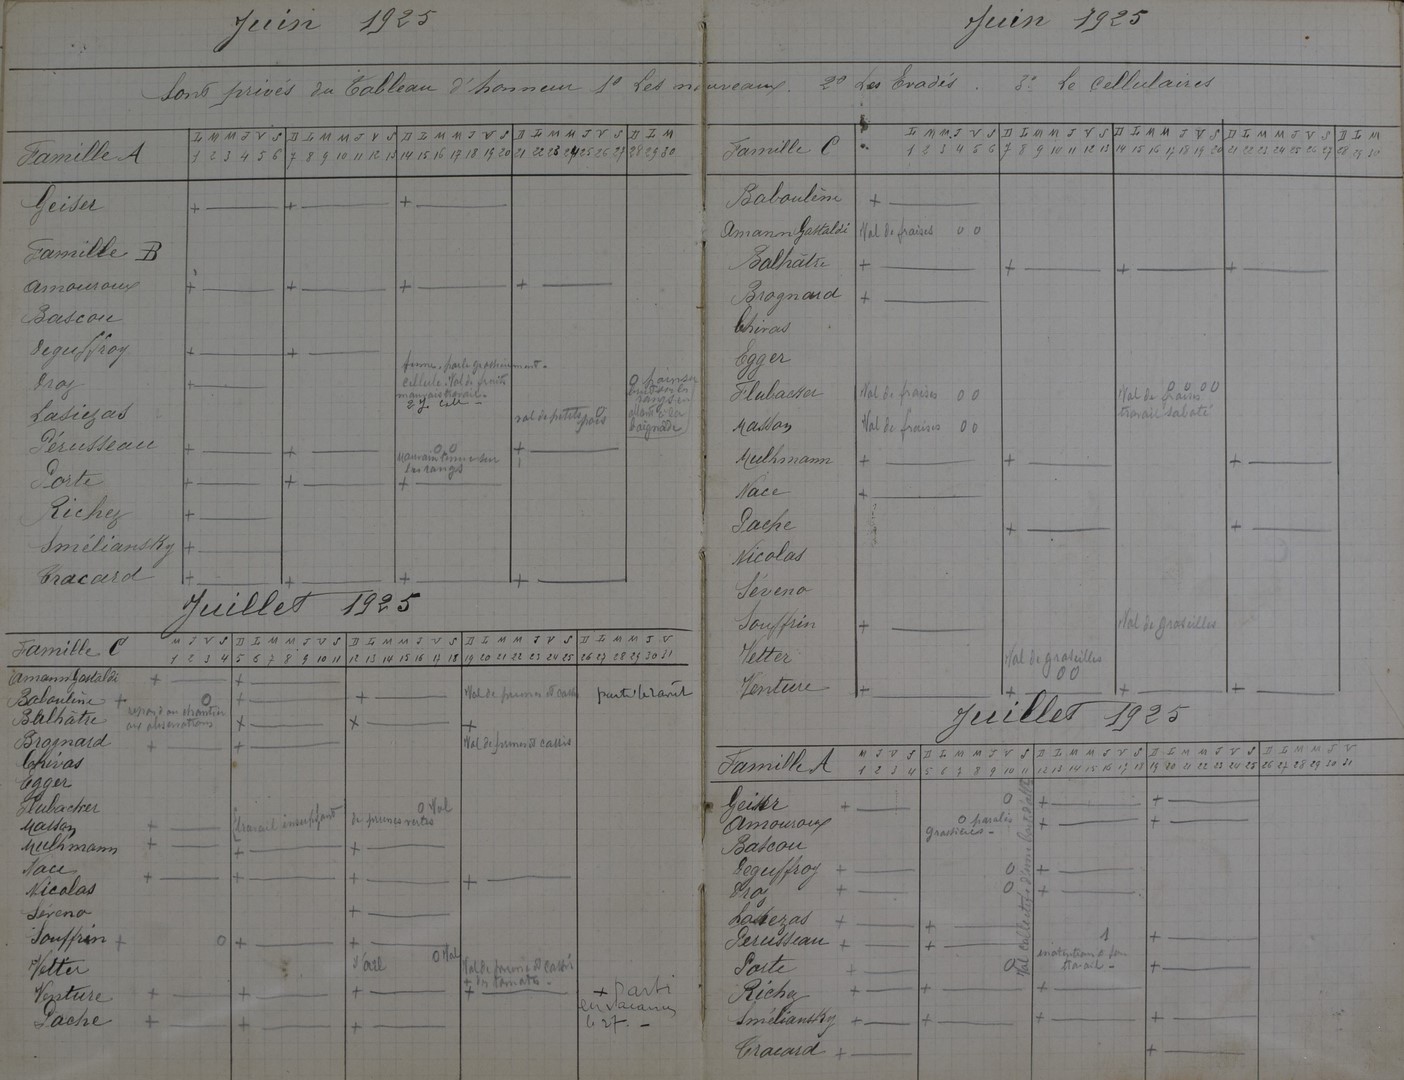 Juin 1925
Sont privés du Tableau d'honneur 1° Les nouveaux. 2° Les Evadés. 3° Le Cellulaires
Famille A
L M M J V S D L M M J V S D L M M J V S D L M M J V S D L M
1 2 3 4 5 6 7 8 9 10 11 12 13 14 15 16 17 18 19 20 21 22 23 24 25 26 27 28 29 30
Geiser + + +
Famille B
Amouroux + + + +
Bascou
Deguffroy + +
Droz +
parle grossièrement.
cellule. Vol de fruits
mauvais travail.
2 J cell
Lasiezas
vol de petits pois
0
rangs en
baignade
Pérusseau + + 0 0 +
les rangs
Porte + + +
Richez +
Sméliansky +
Tracard + + + +
Juillet 1925
Famille C
M J V S D L M M J V S D L M M J V S D L M M J V S D L M M J V
1 2 3 4 5 6 7 8 9 10 11 12 13 14 15 16 17 18 19 20 21 22 23 24 25 26 27 28 29 30 31
Amann Gastaldi + +
Baboulène + 0 + + Vol de prunes et cassis
aux observations
Balhâtre + + +
Brognard + + Vol de prunes et cassis
Chivas
Egger
Flubacker
Masson + travail insuffisant 0 Vol de prunes vertes
Mulhmann + + +
Nace + + + +
Nicolas
Séveno +
Souffrin + 0 + +
Vetter 0 Vol Vol de prunes et cassis
+ de tomates.
Venture + + + + + parti
en vacances
le 27.
Pache + + +
Juin 1925
Famille C
L M M J V S D L M M J V S D L M M J V S D L M M J V S D L M
1 2 3 4 5 6 7 8 9 10 11 12 13 14 15 16 17 18 19 20 21 22 23 24 25 26 27 28 29 30
Baboulène +
Amann Gastaldi Vol de fraises 0 0
Balhâtre + + + +
Brognard +
Chivas
Egger
Flubacker Vol de fraises 0 0 Vol de fraises 0 0 0 0
travail saboté
Masson Vol de fraises 0 0
Mulhmann + + +
Nace +
Pache + +
Nicolas
Séveno
Souffrin + Vol de groseilles
Vetter Vol de groseilles
0 0
Venture + + + +
Juillet 1925
Famille A
M J V S D L M M J V S D L M M J V S D L M M J V S D L M M J V
1 2 3 4 5 6 7 8 9 10 11 12 13 14 15 16 17 18 19 20 21 22 23 24 25 26 27 28 29 30 31
Geiser + 0 + +
Amouroux 0 paroles
grossières - + +
Bascou
Deguffroy + 0 +
Droz + 0 +
Vol collectif
Lasiezas + +
Perusseau + + 1 +
Porte + 0 inattention à son
travail - +
Richez + + +
Sméliansky + + + +
Tracard + +